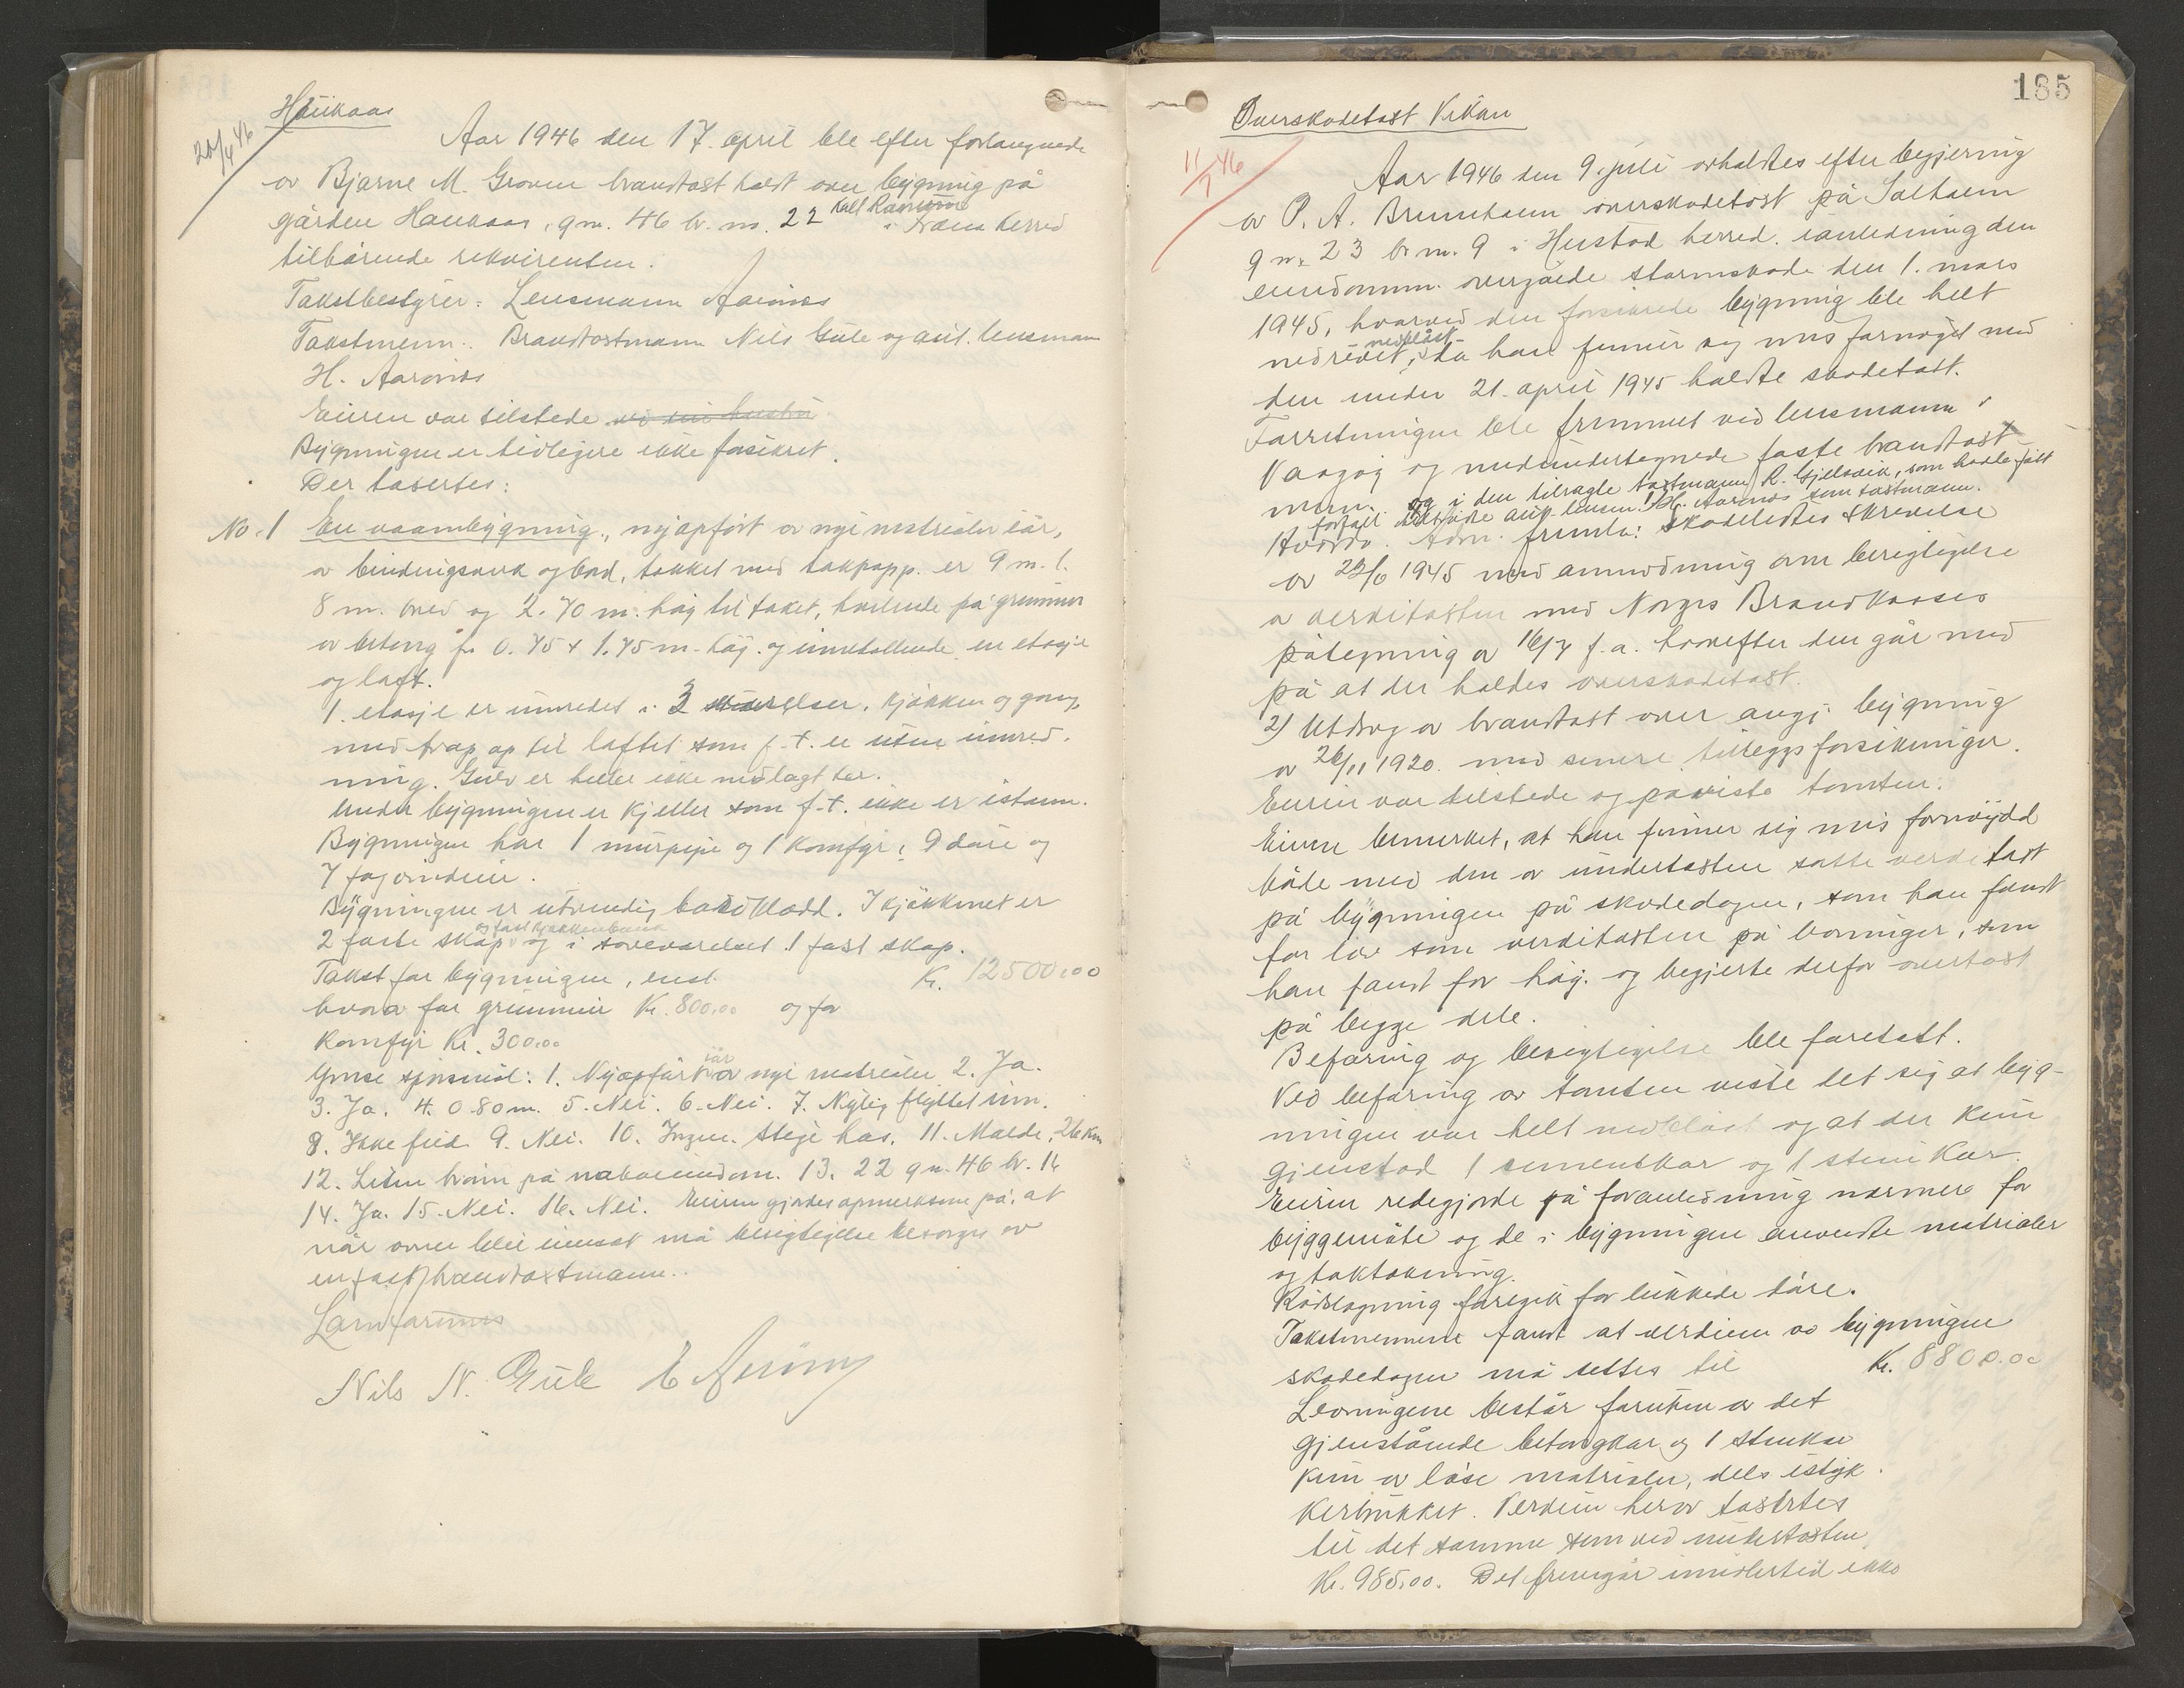 Haukaas
20/4 46
Aar 1946 den 17. april ble efter forlangende
av Bjarne M. Groven brandtast holdt over bygning på
kalt
gården Haukaas, g.nr. 46 br. nr. 22 i Fræna herred
tilhørende rekvirenten.
Takstbestyrer: Lensmann Aarønes
Takstmenn: Brandtastmann Nils Gule og asit. lensmann
H. Aarønes
Eieren var tilstede ved sin hustru
Bygningen er tidligere ikke forsikret.
Der taxertes:
No. 1 En vaanbygning, nyopført av nye matrialer iår,
av bindingsverk og bord, tekket med takpapp. er 9 m. l.
8 m. bred og 2.70 m. høg til taket, hvilende på grunnmur
av betong fra 0.75 + 1.75 m. høg. og inneholdende en etasje
og loft.
1. etasje er innredet i 3 værelser, kjøkken og gang,
med trap op til loftet som f.t. er uten innred-
ning. Gulv er heller ikke nedlagt der.
Under bygningen er kjeller som f.t. ikke er istann.
Bygningen har 1 murpipe og 1 komfyr, 9 døre og
7 fag vinduer.
Bygningen er utvendig bordkledd. I kjøkkenet er
og fast kjøkkenbenk
2 faste skap og i soveværelset 1 fast skap.
Takst for bygningen, enst. Kr. 12500,00
hvorav for grunnmur Kr. 800,00 og for
komfyr Kr. 300,00
iår
Gnrse spørsmål: 1. Nyopført av nye matrialer 2. Ja.
3. Ja. 4. 0.80 m. 5. Nei. 6. Nei. 7. Nylig flyttet inn.
8. Ikke feid. 9. Nei. 10. Ingen. Steje has. 11. Molde, 26 km
12. Liten brønn på naboeiendom. 13. 22 gn. 46 br. 16
14. Ja. 15. Nei. 16. Nei. Eieren gjordes opmerksom på, at
når ovner blir innsat må besigtigelse besørges av
en fast brandtaxtmann.
Nils N. Gule E Aarønes
185
Overskadetast Vikan
11/7 46
Aar 1946 den 9. juli avholdtes efter begjæring
av P. A. Brunheim overskadetast på Solheim
g nr. 23 br nr. 9 i Hustad herred. i anledning den
eiendommen overgåede stormskade den 1. mars
1945, hvorved den forsikrede bygning ble helt
nedblåst
nedrevet, da han finner seg mis fornøget med
den under 21. april 1945 holdte skadetast.
Forretningen ble fremmet ved lensmannen i
Vaagøy og medundertegnede faste brandtast-
menn. og i den tilsagte tastmann R. Gjelsvik, som hadde fått
forfall tilkaldte asit. lensm. H. Aarønes som tastmann.
Hvorda. Adm. fremla: skadelidtes skrivelse
av 23/6 1945 med anmodning om besigtigelse
av verditasten med Norges Brandkasses
påtegning av 16/7 f.a. hvorefter den går med
på at der holdes overskadetast.
2) Utdrag av brandtast over angj. bygning
av 26/11 1920. med senere tilleggsforsikringer.
Eieren var tilstede og påviste tomten.
Eieren bemerket, at han finner sig mis fornøydd
både med den av undertasten satte verditast
på bygningen på skadedagen, som han fandt
for lav som verditasten på levninger, som
han fandt for høg. og begjerte derfor overtast
på begge dele.
Befaring og besigtigelse ble foretatt.
Ved befaring av tomten viste det sig at byg-
ningen var helt nedblåst og at der kun
gjenstod 1 sementkar og 1 stein kar.
Eieren redegjorde på foranledning nærmere for
byggemåte og de i bygningen anvendte matrialer
og taktekning.
Rådslagning foregik for lukkede døre.
Takstmennene fandt at verdien av bygningen
skadedagen må settes til Kr. 8800.00
Levningene består foruten av det
gjenstående betongkar og 1 stenkar
kun av løse matrialer, dels istyk-
kerbrukket. Verdien herav tastrtes
til det samme som ved undertasten
Kr. 985,00. Det fremgår imidlertid ikke